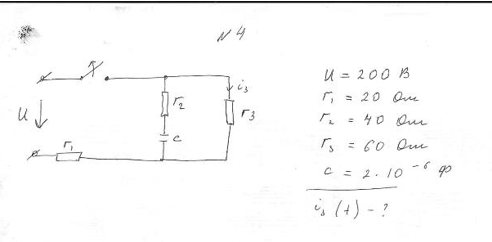 N 4
i₃
r₂
U
r₃
c
r₁
U = 200 В
r₁ = 20 Ом
r₂ = 40 Ом
r₃ = 60 Ом
c = 2·10⁻⁶ ф
i₃(t) - ?